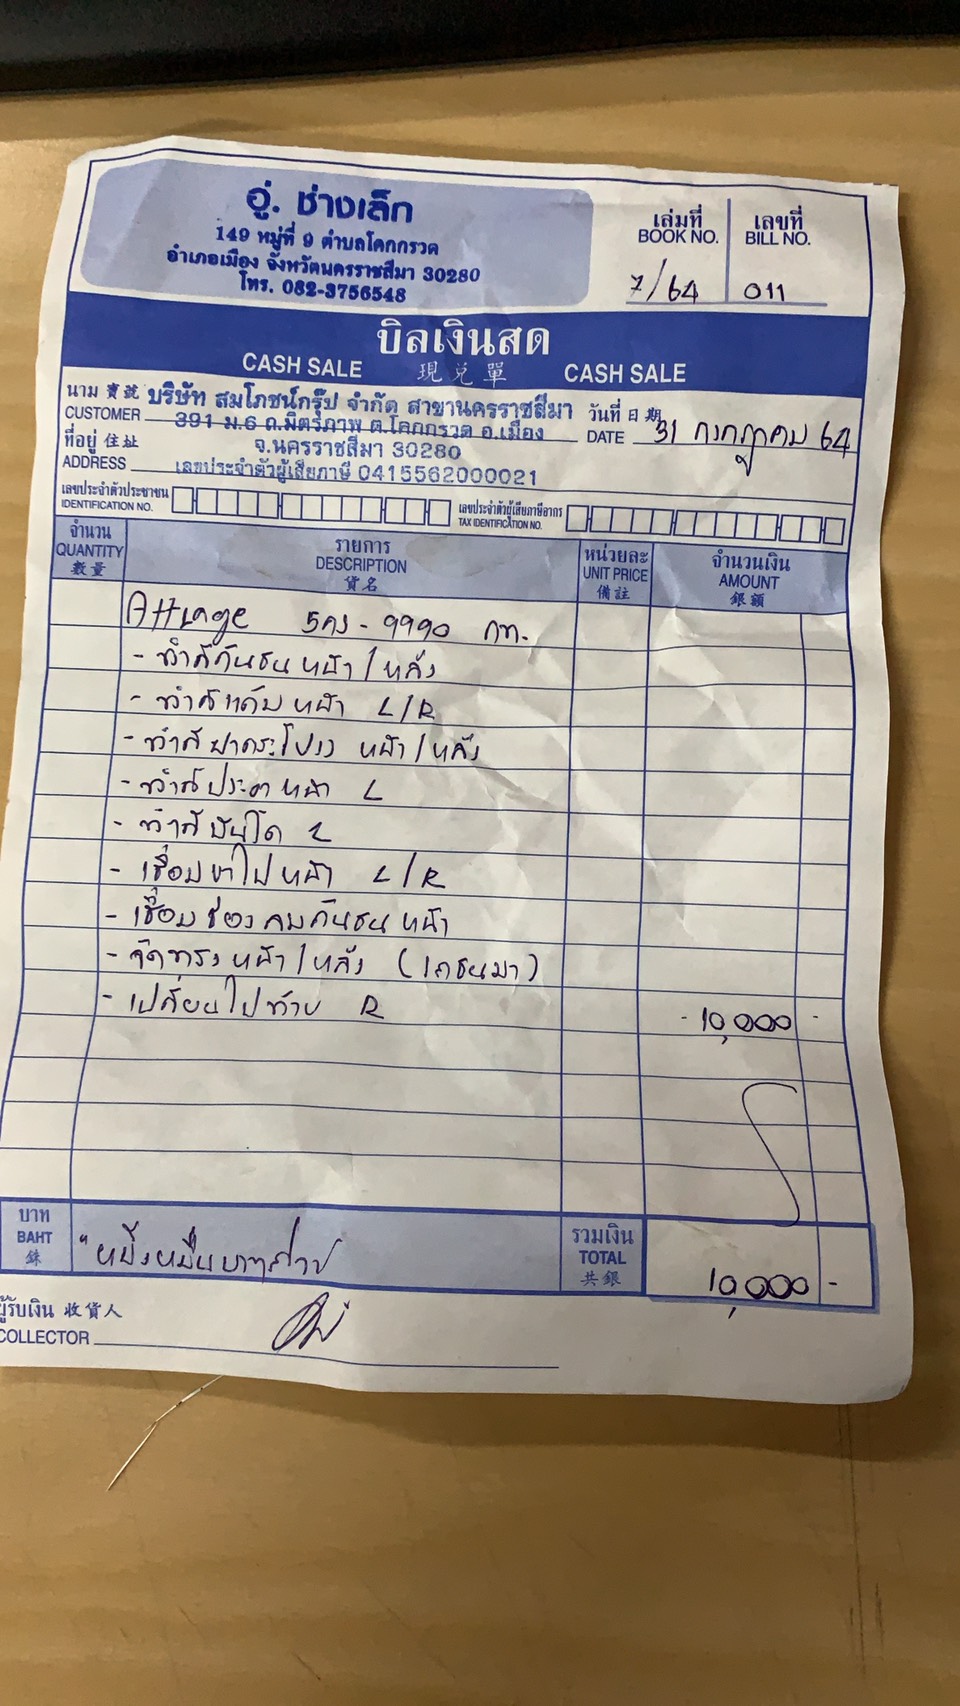 อู่. ช่างเล็ก
149 หมู่ที่ 9 ตำบลโคกกรวด
อำเภอเมือง จังหวัดนครราชสีมา 30280
โทร. 082-3756548
เล่มที่ เลขที่
BOOK NO. BILL NO.
7/64 011
บิลเงินสด
CASH SALE 現兌單 CASH SALE
นาม 寶號 บริษัท สมโภชน์กรุ๊ป จำกัด สาขานครราชสีมา วันที่ 日期
CUSTOMER 391 ม.6 ถ.มิตรภาพ ต.โคกกรวด อ.เมือง DATE 31 กรกฎาคม 64
ที่อยู่ 住址 จ.นครราชสีมา 30280
ADDRESS เลขประจำตัวผู้เสียภาษี 0415562000021
เลขประจำตัวประชาชน เลขประจำตัวผู้เสียภาษีอากร
IDENTIFICATION NO. TAX IDENTIFICATION NO.
จำนวน รายการ หน่วยละ จำนวนเงิน
QUANTITY DESCRIPTION UNIT PRICE AMOUNT
數量 貨名 備註 銀額
Attrage 5กง - 9990 กท.
- ทำสีกันชน หน้า / หลัง
- ทำสีแก้ม หน้า L/R
- ทำสีฝากระโปรง หน้า / หลัง
- ทำสีประตูหน้า L
- ทำสีบันได L
- เชื่อมขาไฟหน้า L/R
- เชื่อมช่องลมกันชน หน้า
- จัดทรง หน้า / หลัง (เถชนมา)
- เปลี่ยนไฟท้าย R - 10,000 -
บาท
BAHT
銖
"หนึ่งหมื่นบาทถ้วน
รวมเงิน
TOTAL
共銀
10,000 -
ผู้รับเงิน 收貨人
COLLECTOR